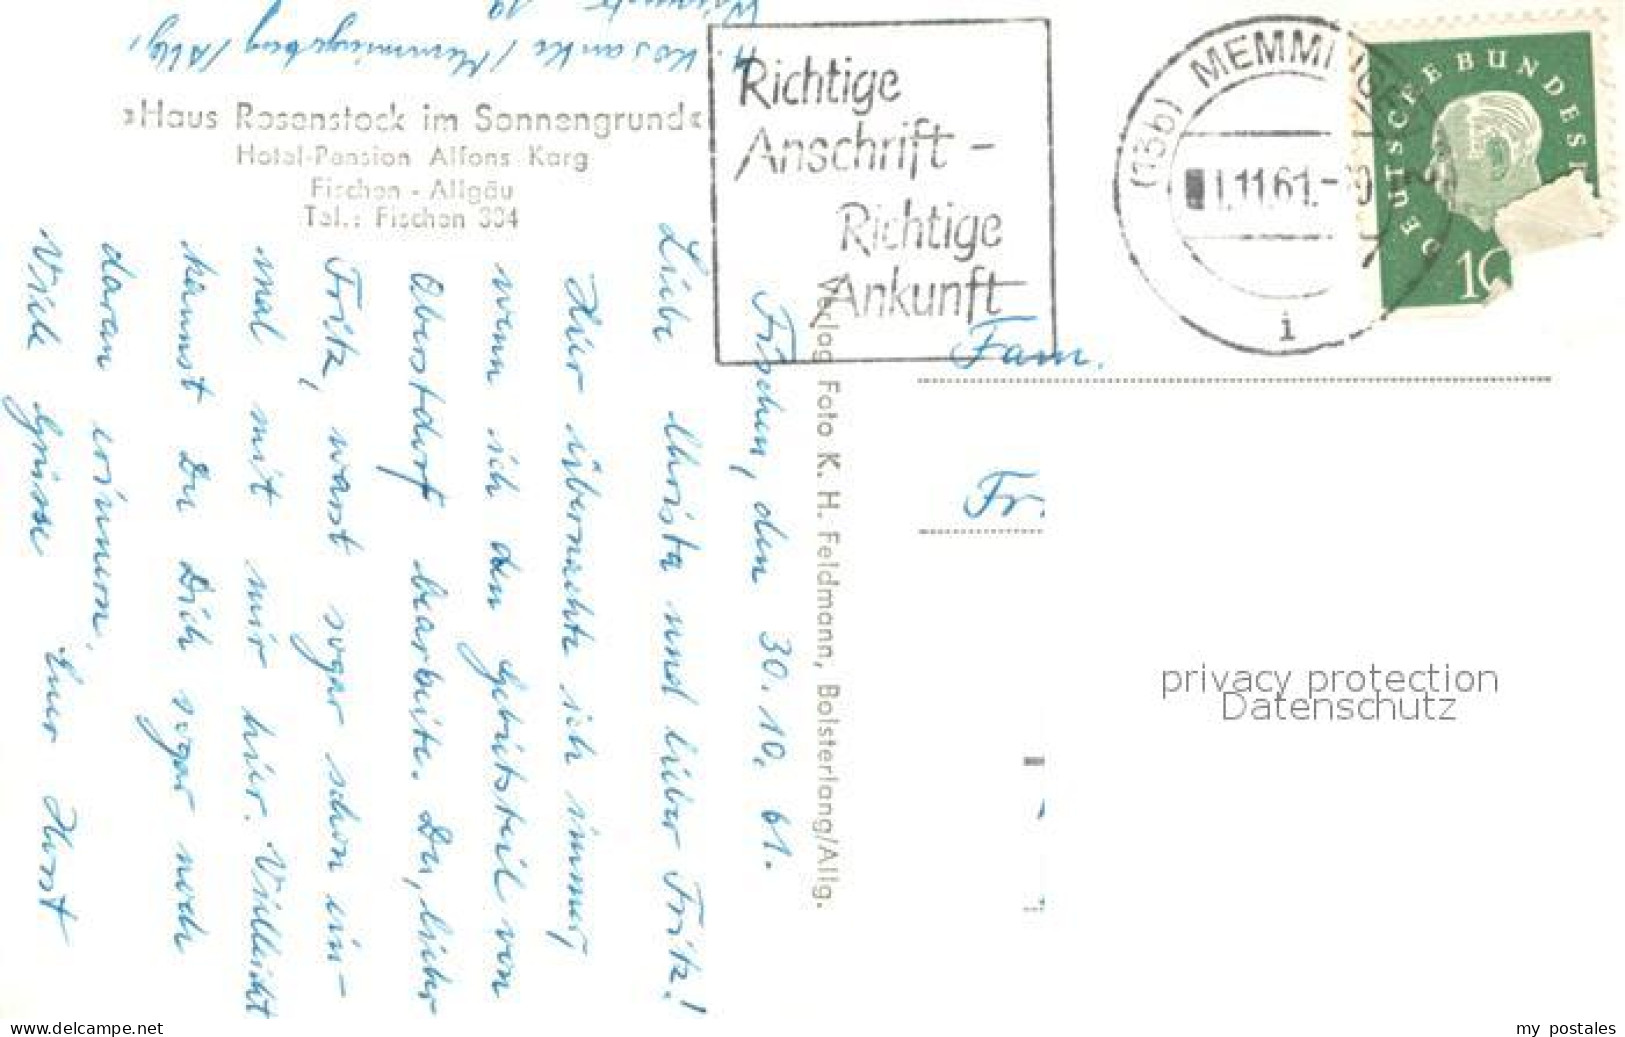 »Haus Rosenstock im Sonnengrund«
Hotel-Pension Alfons Karg
Fischen - Allgäu
Tel.: Fischen 334
H. Kosanke / Memmingerberg / Allg.
Fischen, den 30. 10. 61.
Liebe Christa und lieber Fritz!
Hier übernachte ich immer,
wenn ich den Gebietsteil von
Oberstdorf bearbeite. Du, lieber
Fritz, warst sogar schon ein-
mal mit mir hier. Vielleicht
kannst Du Dich sogar noch
daran erinnern.
Viele Grüsse
Euer Horst
Verlag Foto K. H. Feldmann, Bolsterlang/Allg.
Richtige
Anschrift -
Richtige
Ankunft
(13b) MEMMINGEN
1.11.61.
i
DEUTSCHE BUNDESP
10
Fam.
privacy protection
Datenschutz
www.delcampe.net
my postales